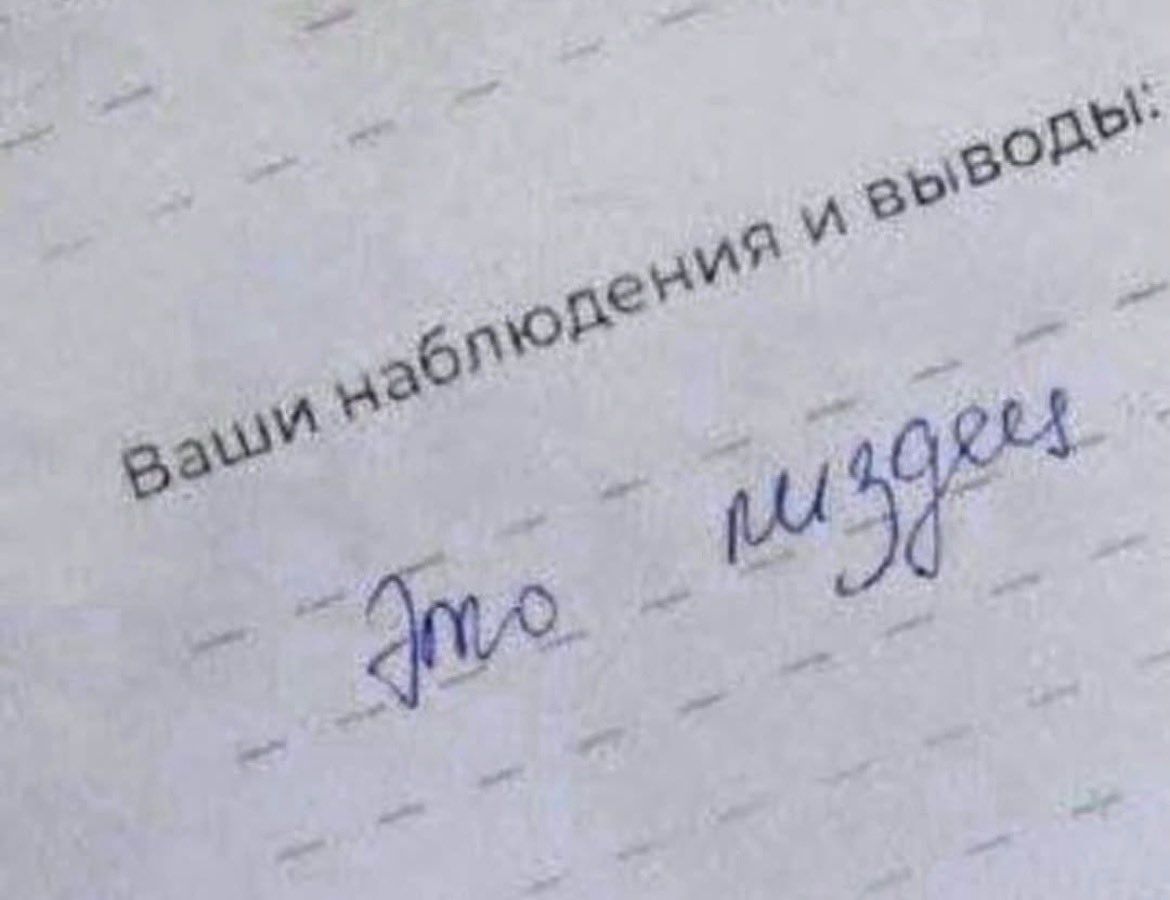 Ваши наблюдения и выводы:
Это пиздец